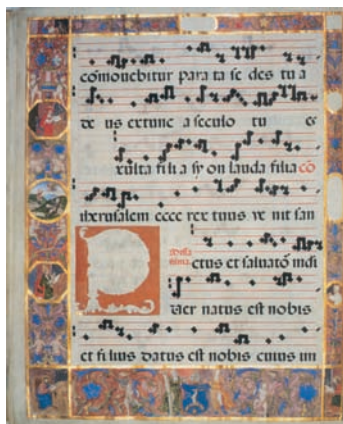 cōmouebitur para ta se des tu a
de us extunc a seculo tu es
xulta fili a sy on lauda filia
iherusalem ecce rex tuus ve nit san
ctus et saluatō mdi
P uer natus est nobis
et fi lius datus est nobis cuius im